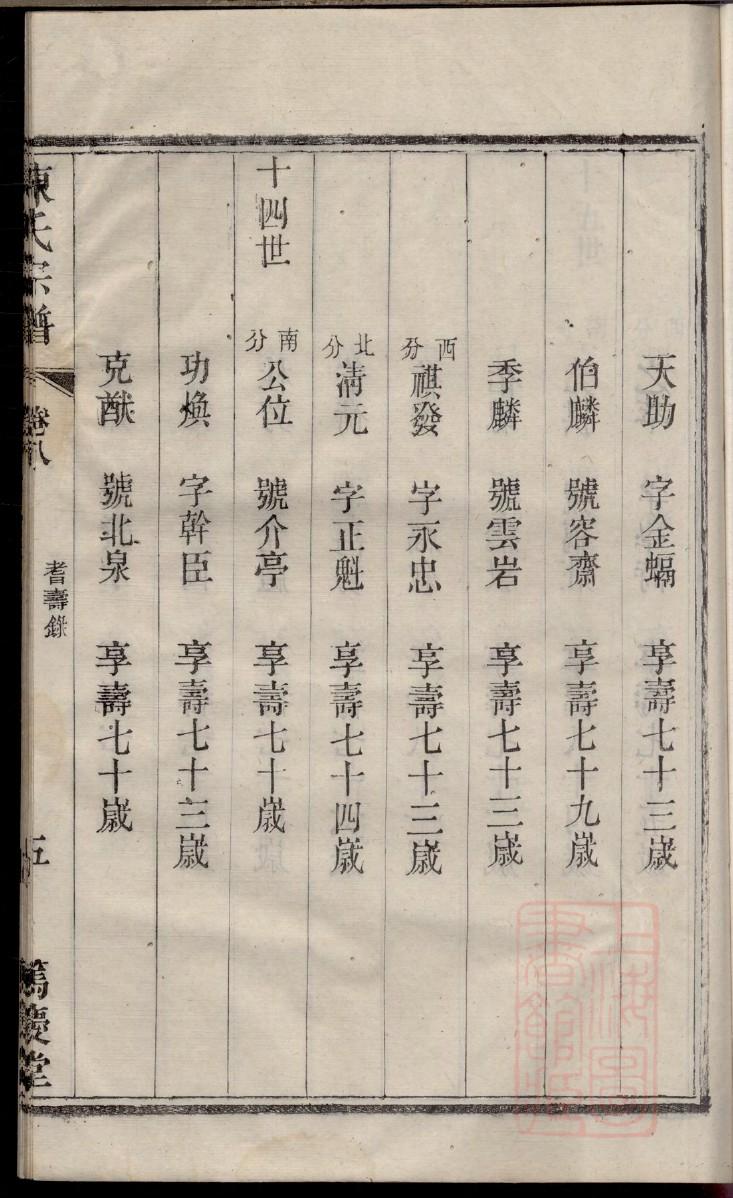 天助 字金蝠 享壽七十三歲
伯麟 號容齋 享壽七十九歲
季麟 號雲岩 享壽七十三歲
西分 祺發 字永忠 享壽七十三歲
北分 清元 字正魁 享壽七十四歲
十四世 南分 公位 號介亭 享壽七十歲
功煥 字幹臣 享壽七十三歲
克猷 號北泉 享壽七十歲
陳氏宗譜 卷八 耆壽錄 五 篤慶堂
上海圖書館藏